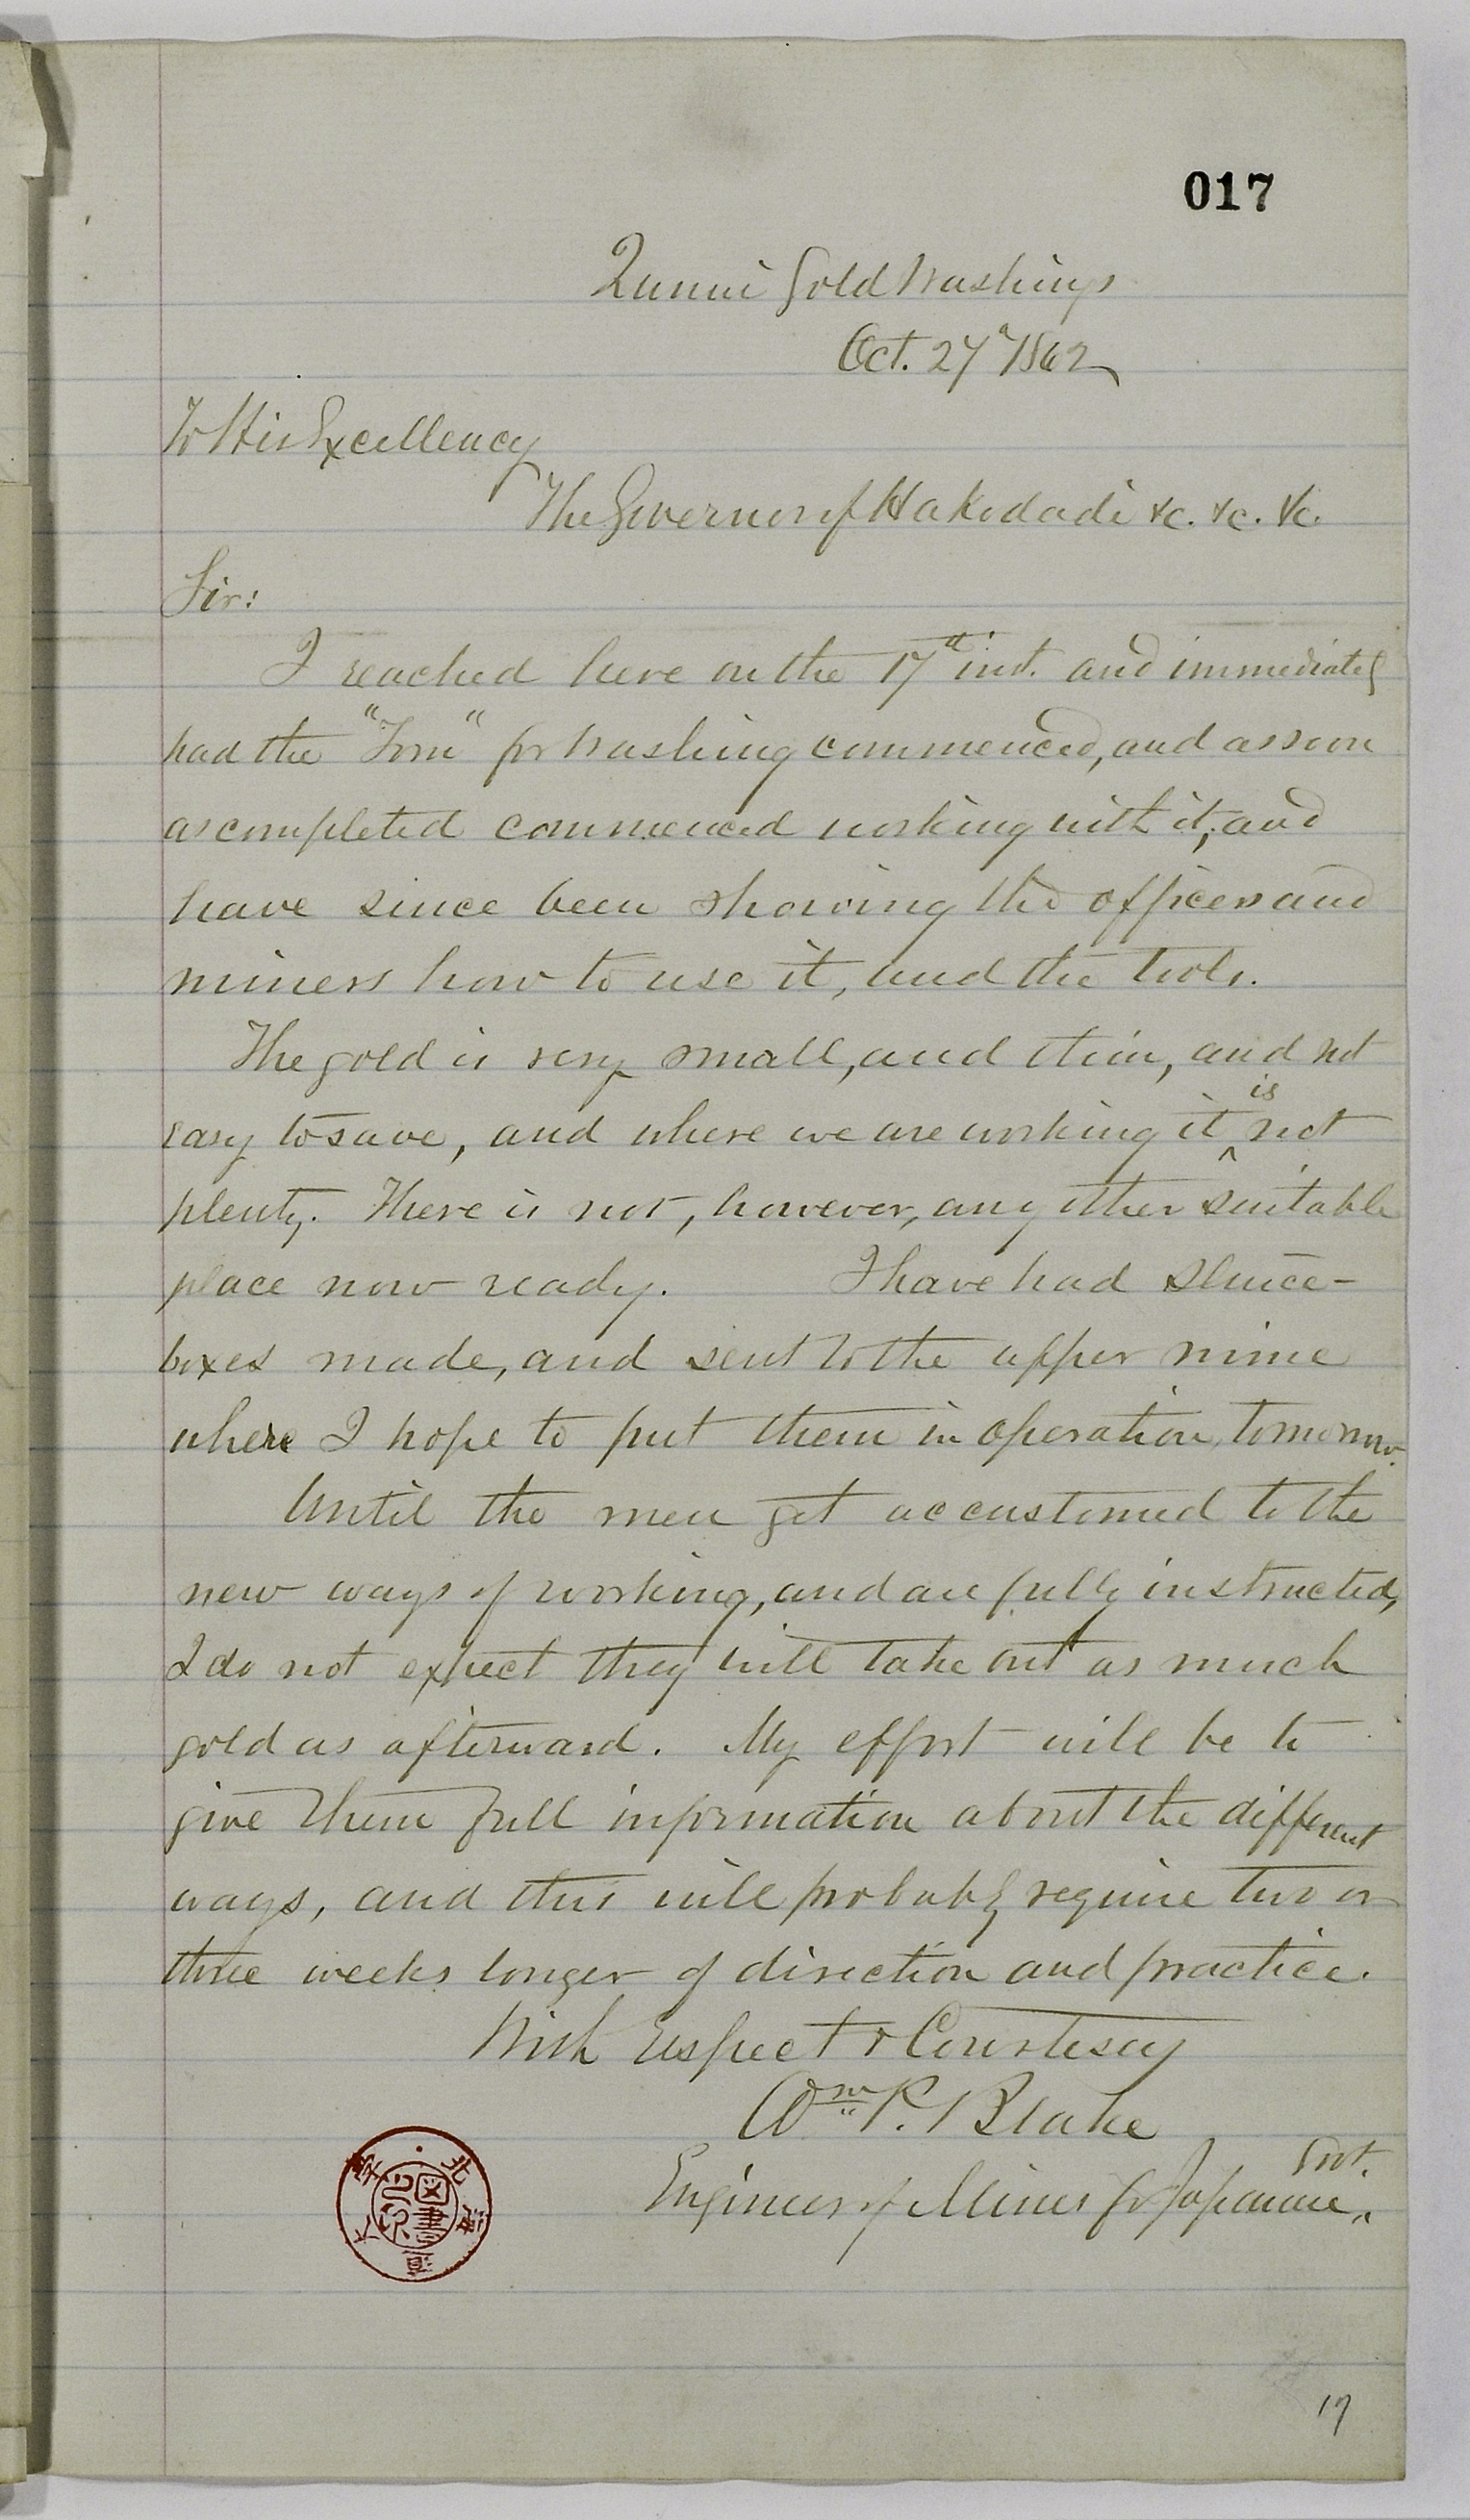 017
Kunnui Gold Washings
Oct. 27th 1862
To His Excellency
The Governor of Hakodadi &c. &c. &c.
Sir:
I reached here on the 17th inst. and immediately
had the "Tom" for washing commenced, and as soon
as completed commenced working with it; and
have since been showing the officers and
miners how to use it, and the tools.
The gold is very small, and thin, and not
easy to save, and where we are working it is not
plenty. There is not, however, any other suitable
place now ready. I have had sluice-
boxes made, and sent to the upper mine
where I hope to put them in operation tomorrow.
Until the men get accustomed to the
new ways of working, and are fully instructed,
I do not expect they will take out as much
gold as afterward. My effort will be to
give them full information about the different
ways, and this will probably require two or
three weeks longer of direction and practice.
With respect & Courtesy
Wm P. Blake
Engineer of Mines for Japanese Govt.
北海道帝國大學
圖書
17